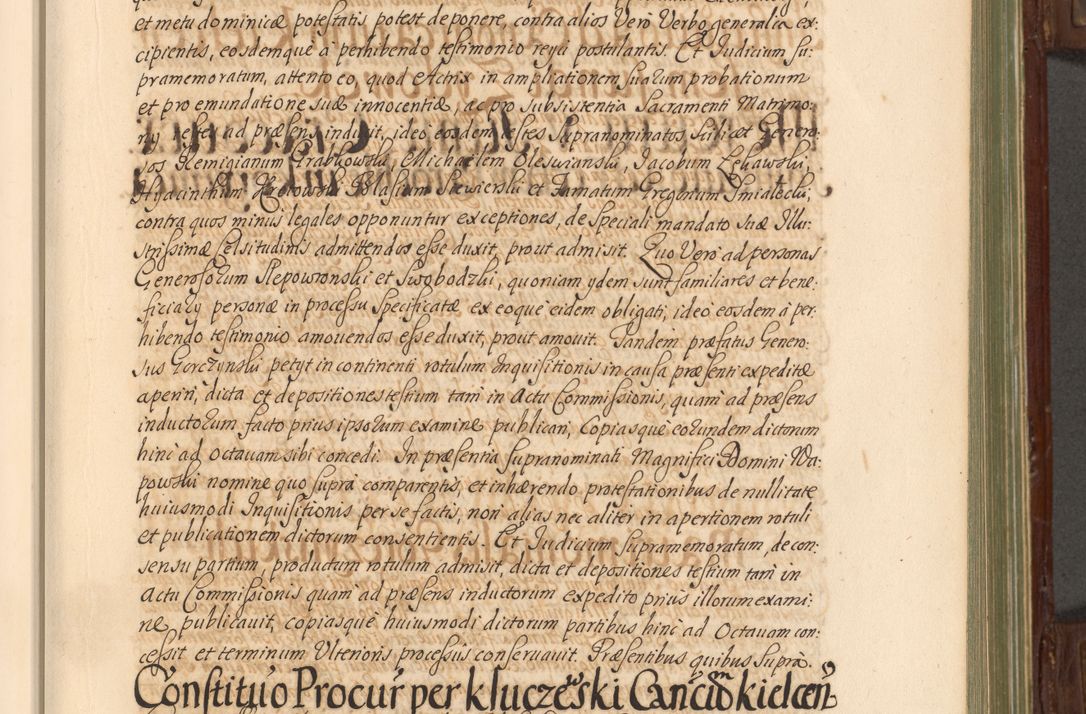 et metu dominicæ potestatis potest deponere, contra alios Vero Verbo generalia ex:
cipientis, eosdemque a perhibendo testimonio reyci postulantis. Et Judicium su:
pramemoratum, attento eo, quod Actrix in ampliationem suarum probationum
et pro emundatione suæ innocentiæ, ac pro subsistentia Sacramenti Matrimo:
ny testes ad præsens induxit, ideo eosdem testes supranominatos scilicet Genero:
sos Remigianum Grabkowski, Michaelem Oleswianski, Jacobum Zękawski,
Hyacinthum Blasium Siewierski et Famatum Gregorium Smialecki,
contra quos minus legales opponuntur exceptiones, de speciali mandato suæ Illu:
strissimæ Celsitudinis admittendos esse duxit, prout admisit. Quo Vero ad personas
Generosorum Slepowronski et Swobodzki, quoniam ydem sunt familiares et bene:
ficiary personæ in processu specificatæ ex eoque eidem obligati, ideo eosdem à per:
hibendo testimonio amovendos esse duxit, prout amovit. Tandem præfatus Genero:
sus Gorczynski petyt in continenti rotulum Inquisitionis in causa præsenti expeditæ
aperiri, dicta et depositiones testium tam in Actu Commissionis, quam ad præsens
inductorum facto prius ipsorum examine publicari, Copiasque eorundem dictorum
hinc ad octavam sibi concedi. In præsentia supranominati Magnifici Domini Wa:
powski nomine quo supra comparentis, et inhærendo protestationibus de nullitate
huiusmodi Inquisitionis per se factis, non alias nec aliter in apertionem rotuli
et publicationem dictorum consentientis. Et Judicium supramemoratum, de con:
sensu partium, productum rotulum admisit, dicta et depositiones testium tam in
Actu Commissionis quam ad præsens inductorum expedito prius illorum exami:
ne, publicavit, copiasque huiusmodi dictorum partibus hinc ad Octavam con:
cessit et terminum Ulterioris processus conservavit. Præsentibus quibus supra.
Constitutio Procur per kluczewski Cancum kielcen